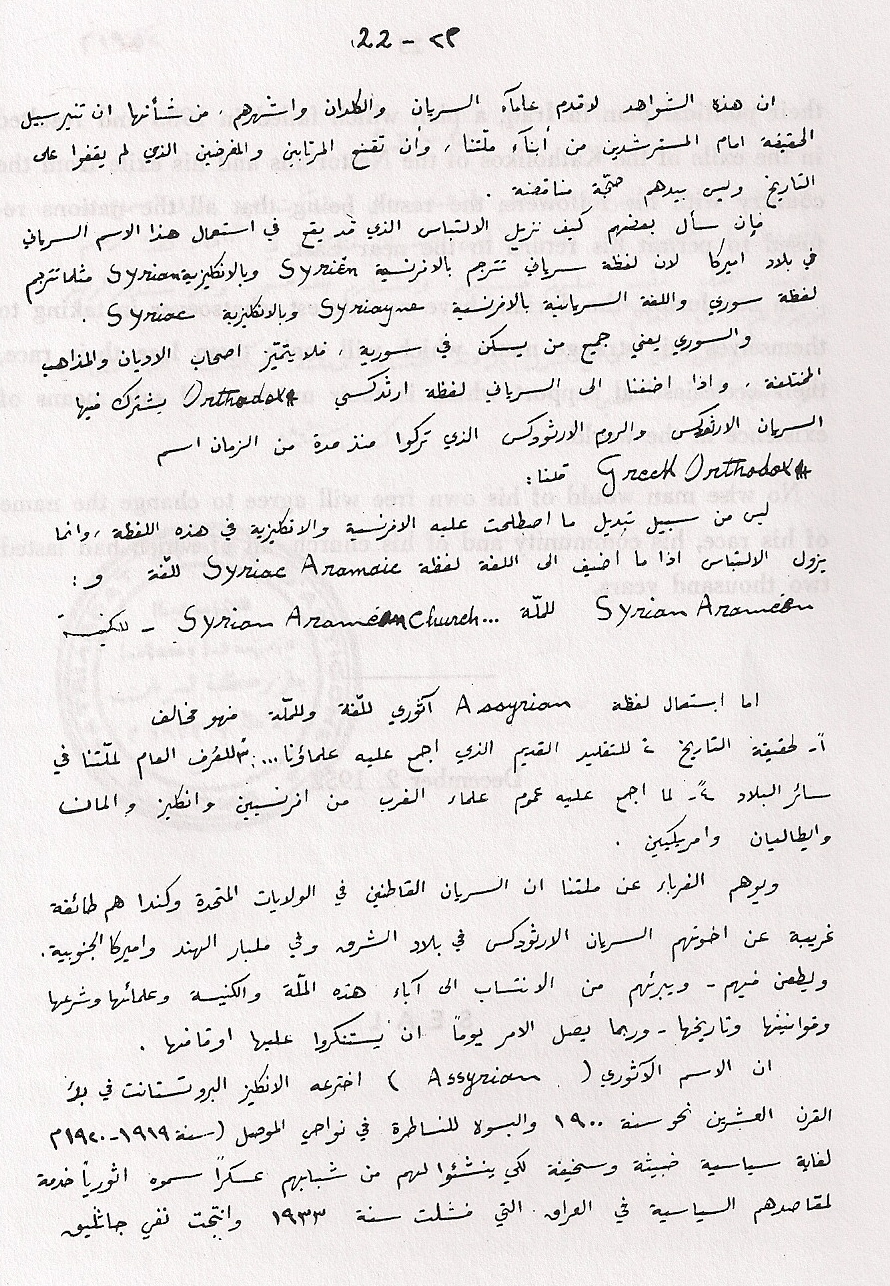 ٢٢ - 22
ان هذه الشواهد لاقدم علمآء السريان والكلدان واشهرهم، من شأنها ان تنير سبيل
الحقيقة امام المسترشدين من أبنآء ملّتنا، وأن تقنع المرتابين والمغرضين الذي لم يقفوا على
التاريخ وليس بيدهم حجّة مناقضة .
فإن سأل بعضهم كيف نزيل الالتباس الذي قد يقع في استعمال هذا الاسم السرياني
في بلاد اميركا لان لفظة سرياني تترجم بالافرنسية Syrién وبالانكليزية Syrian مثلما تترجم
لفظة سوري واللغة السريانية بالافرنسية Syriayne وبالانكليزية Syriac .
والسوري يعني جميع من يسكن في سورية، فلا يتميّز اصحاب الاديان والمذاهب
المختلفة، واذا اضفنا الى السرياني لفظة ارثذكسي Orthodox يشترك فيها
السريان الارثوذكس والروم الارثوذكس الذي تركوا منذ مدة من الزمان اسم
Greek Orthodox قلنا:
ليس من سبيل تبديل ما اصطلحت عليه الافرنسية والانكليزية في هذه اللفظة، وانما
يزول الالتباس اذا ما اضيف الى اللغة لفظة Syriac Aramaic للّغة و :
Syrian Araméen للملّة ... Syrian Aramean Church - للكنيسة
اما استعمال لفظة Assyrian آثوري للّغة وللملّة فهو مخالف
١ً- لحقيقة التاريخ ٢ للتقليد القديم الذي اجمع عليه علماؤنا...: ٣ للعُرف العام لملّتنا في
سائر البلاد ٤ً- لما اجمع عليه عموم علماء الغرب من افرنسيين وانكليز والمان
وايطاليان وامريكيين .
ويوهم الغرباء عن ملتنا ان السريان القاطنين في الولايات المتحدة وكندا هم طائفة
غريبة عن اخوتهم السريان الارثوذكس في بلاد الشرق وفي مليبار الهند واميركا الجنوبية .
ويطعن فيهم - ويبرئهم من الانتساب الى آباء هذه الملّة والكنيسة وعلمائها وشرعها
وقوانينها وتاريخها - وربما يصل الامر يوماً ان يستنكروا عليها اوقافها .
ان الاسم الآثوري ( Assyrian ) اخترعه الانكليز البروتستانت في بدْ
القرن العشرين نحو سنة ١٩٠٠ والبسوه للنساطرة في نواحي الموصل (سنة ١٩١٩-١٩٢٠م
لغاية سياسية خبيثة وسخيفة لكي ينشئوا لهم من شبابهم عسكراً سموه اثورياً خدمة
لمقاصدهم السياسية في العراق التي فشلت سنة ١٩٣٣ وانتجت نفي جاثليق